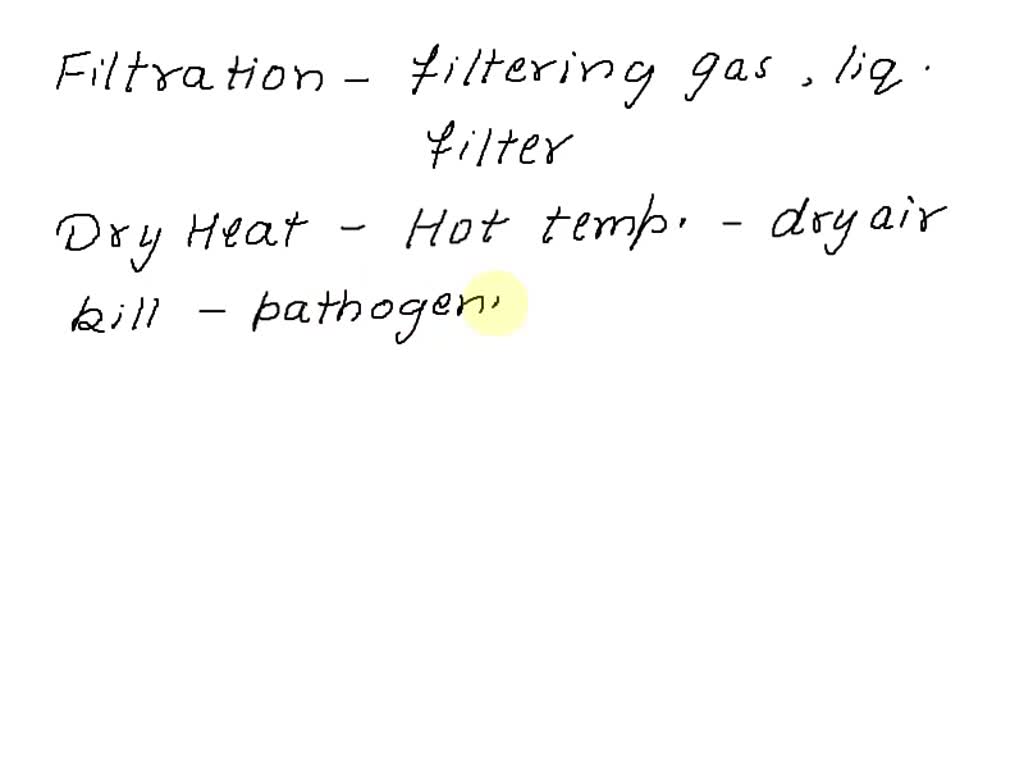 Filtration - filtering gas, liq.
filter
Dry Heat - Hot temp. - dry air
kill - pathogen.